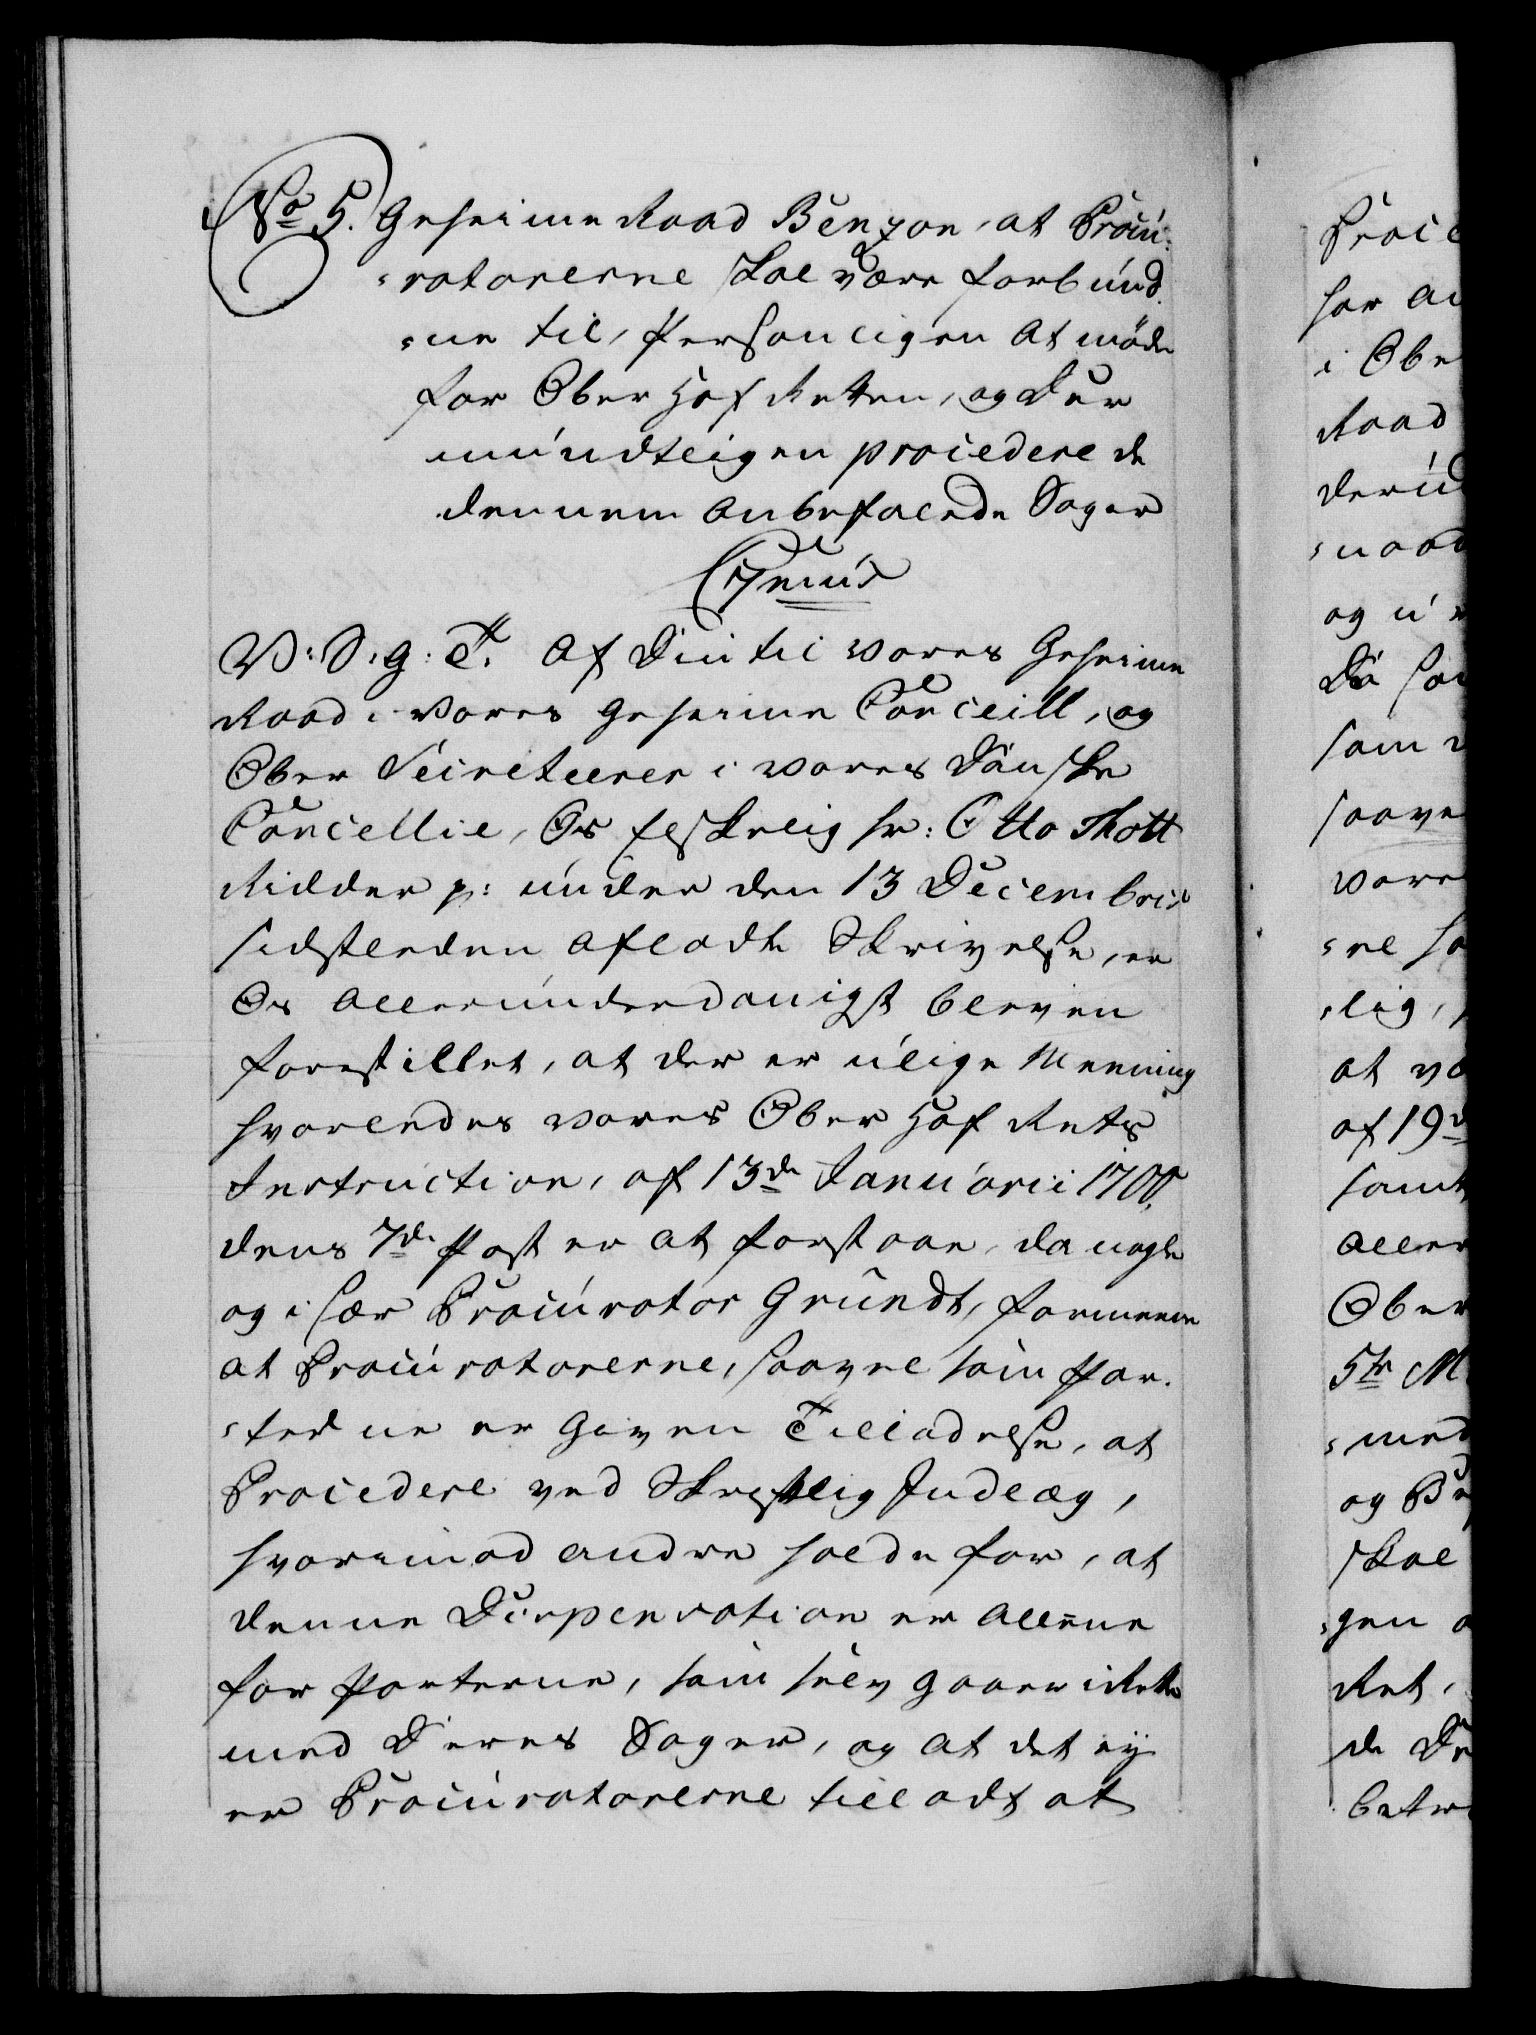 No 5. Geheime Raad Benzon, at Procu-
=ratorerne skal være forbund
=ne til, Personligen at møde
for Ober Hof Retten, og der
mundtligen procedere de
dennem anbefalede Sager
C7mus
V: S: g: T. Af din til vores Geheime
Raad i vores geheime Conceill, og
Ober Secreteerer i vores Danske
Cancellie, Os elskelig Hr: Otto Thott
Ridder p: under den 13 Decembris
sidstleden afladte Skrivelse, er
Os allerunderdanigst bleven
forestillet, at der er ulige Meening
hvorledes vores Ober Hof Rets
Instruction, af 13de Januarii 1700.
dens 7de Post er at forstaae, da nogle
og i sær Procurator Grundt, formeene
at Procuratorerne, saavel som Par-
=terne er given Tilladelse, at
Procedere ved Skriftlig Indlæg,
hvorimod andre holde for, at
denne Dispensation er alleene
for Parterne, som selv gaaer i Rette
med deres Sager, og at det ej
er Procuratorerne tilladt at
Proce
har an
i Obe
Raad
derud
=naad
og u
Da
som
saave
vore
=re
=lig,
at
af 19
samt
aller
Ober
5te M
=med
og Be
skal
=gen
Ret,
de De
betr